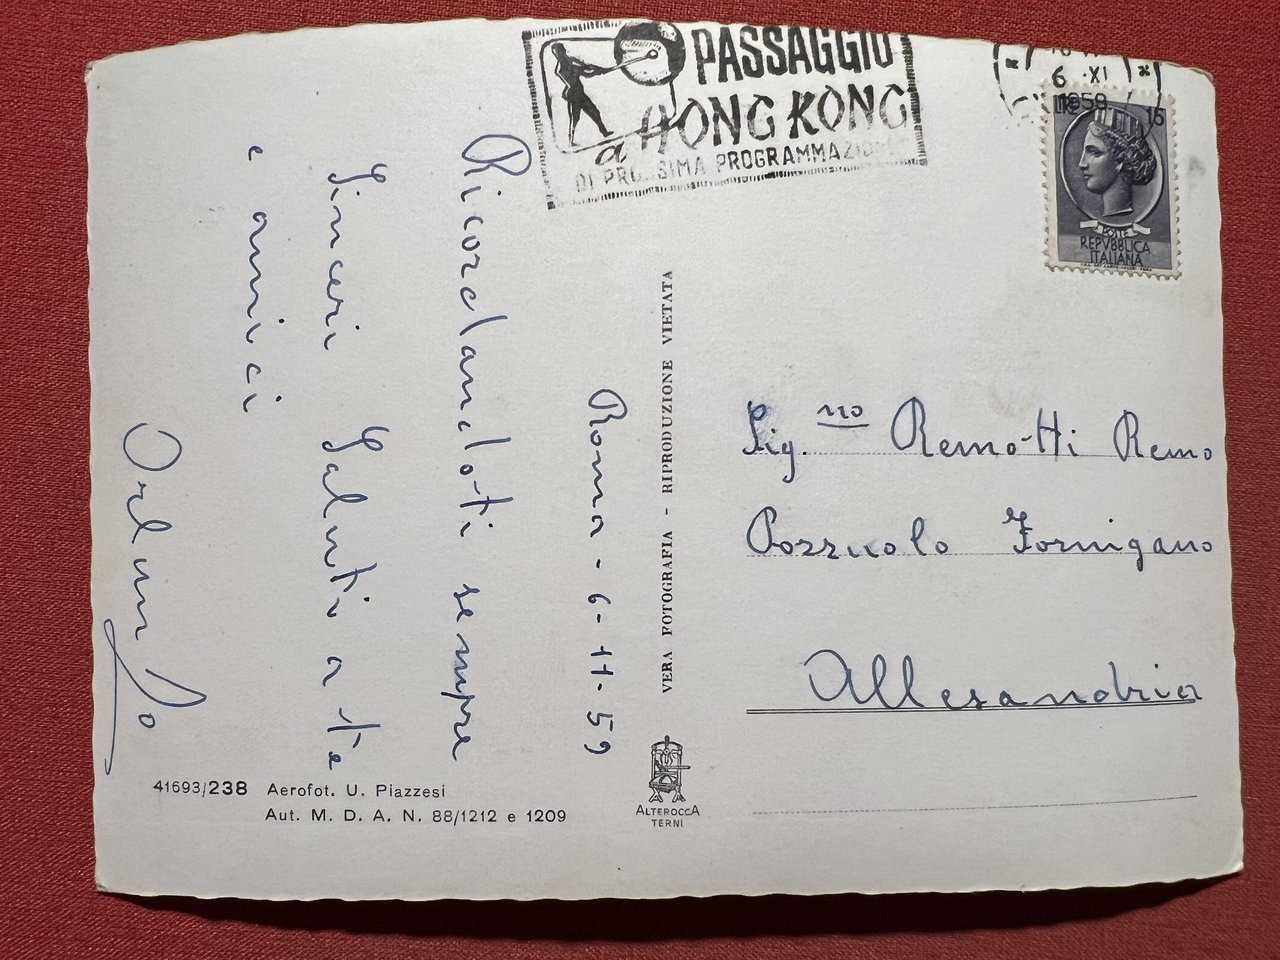 PASSAGGIO
a HONG KONG
DI PROSSIMA PROGRAMMAZIONE
6 XI
1959
LIRE 15
POSTE
REPVBBLICA
ITALIANA
Roma - 6-11-59
Ricordandoti sempre
Sinceri Saluti a te
e amici
Orlando
VERA FOTOGRAFIA - RIPRODUZIONE VIETATA
Sig.no Remotti Remo
Pozzuolo Formigano
Allesandria
41693/238 Aerofot. U. Piazzesi
Aut. M. D. A. N. 88/1212 e 1209
ALTEROCCA
TERNI